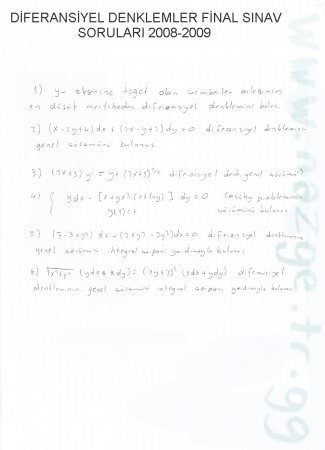 DİFERANSİYEL DENKLEMLER FİNAL SINAV
SORULARI 2008-2009
1) y- eksenine teğet olan çemberler ailesinin
en düşük mertebeden diferansiyel denklemini bulun.
2) (x-2y+4)dx + (2x-y+2)dy = 0 diferansiyel denkleminin
genel çözümünü bulunuz.
3) (2x+3) y' = y + (2x+3)^1/2 diferansiyel denk. genel çözümü?
4) { ydx - [x+xy³(1+lny)] dy = 0 Cauchy probleminin
y(1)=1 çözümünü bulunuz
5) dx + dx=0 diferansiyel denkleminin
genel çözümünü integral çarpanı yardımıyla bulunuz
6) (ydx + xdy) = (xy+3)² (ydx+ydy) diferansiyel
denkleminin genel çözümünü integral çarpanı yardımıyla bulunuz
www.nazge.tr.gg